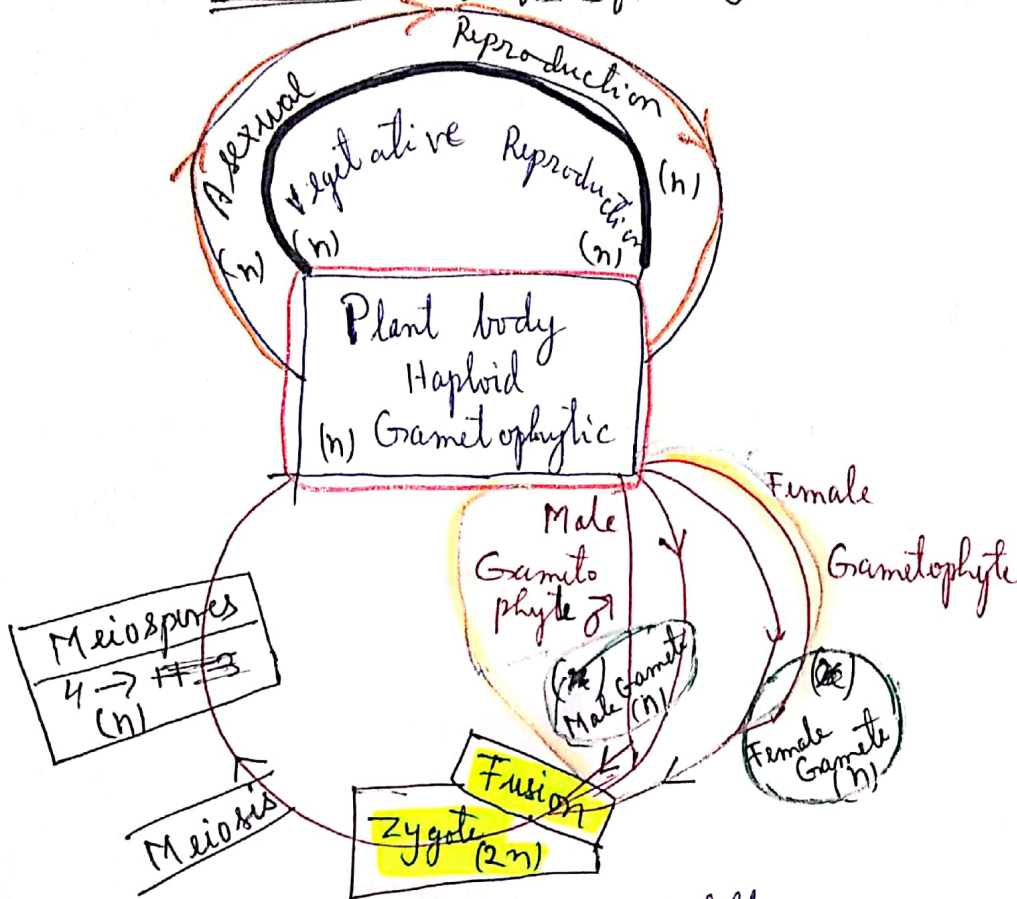 Asexual Reproduction
(n)
(n)
Vegitative Reproduction
(n)
(n)
Plant body
Haploid
(n) Gametophytic
Male
Gameto
phyte
Female
Gametophyte
Male Gamete
(n)
Female
Gamete
(n)
Fusion
Zygote
(2n)
Meiosis
Meiospores
4 →
(n)